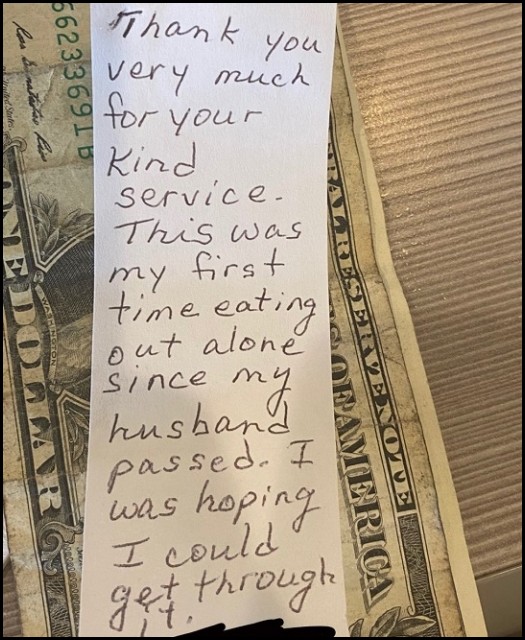 Thank you
very much
for your
kind
service.
This was
my first
time eating
out alone
since my
husband
passed. I
was hoping
I could
get through
it.
66233691 B
ONE DOLLAR
WASHINGTON
FEDERAL RESERVE NOTE
OF AMERICA